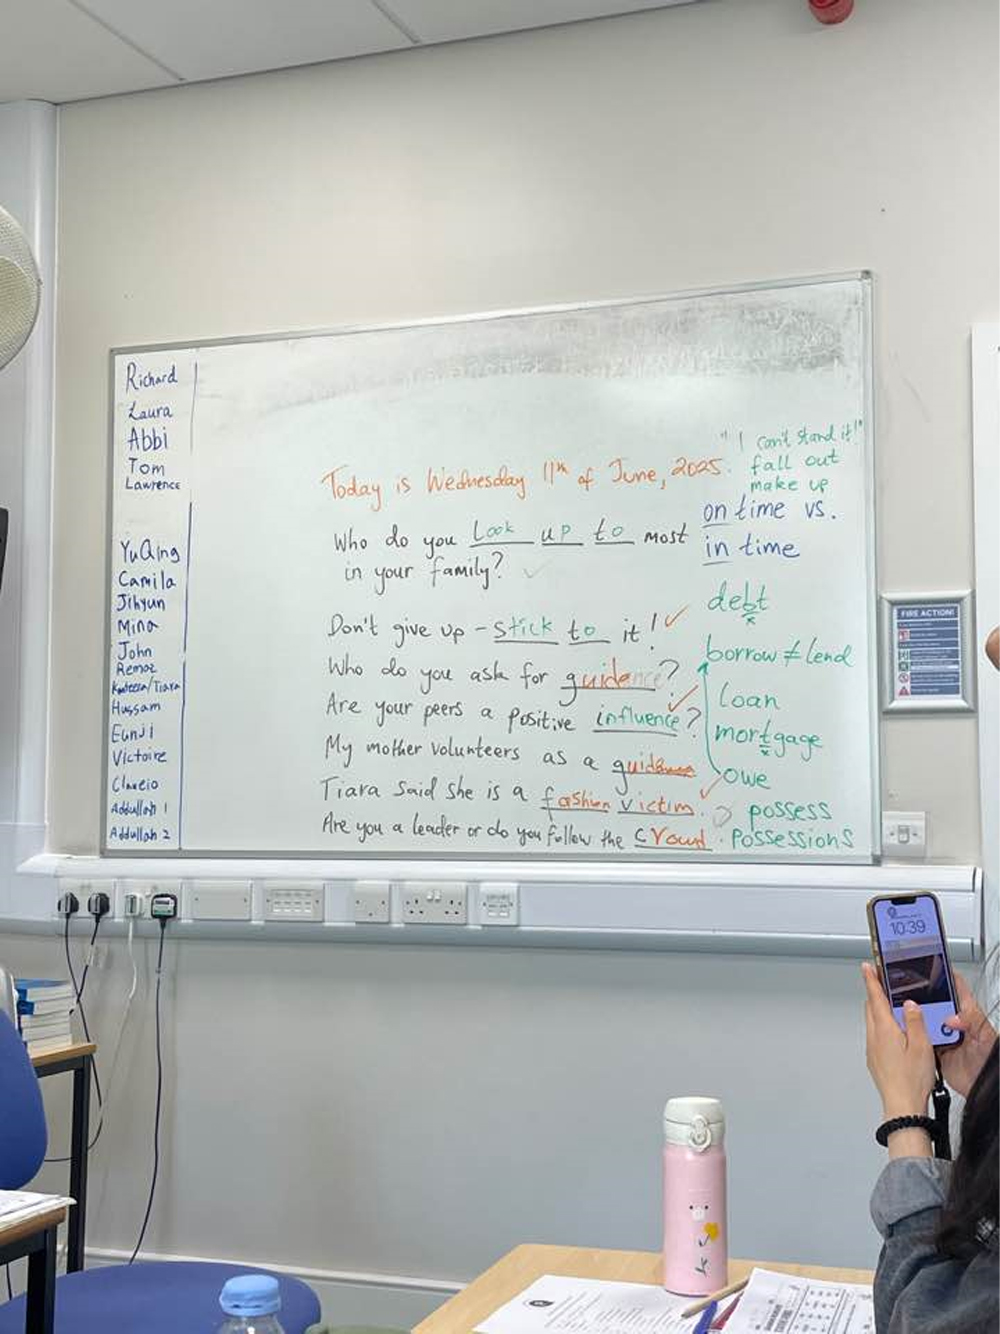 Richard
Laura
Abbi
Tom
Lawrence
YuQing
Camila
Jihyun
Mina
John
Remaz
/Tiara
Hussam
Eunji
Victoire
Addullah 1
Addullah 2
Today is Wednesday 11th of June, 2025.
Who do you look up to most
in your family?
Don't give up - stick to it!
Who do you ask for guidance?
Are your peers a positive influence?
My mother volunteers as a guidance
Tiara said she is a fashion victim.
Are you a leader or do you follow the crowd.
"I can't stand it!"
fall out
make up
on time vs.
in time
debt
borrow ≠ lend
loan
mortgage
owe
possess
possessions
FIRE ACTION!
10:39